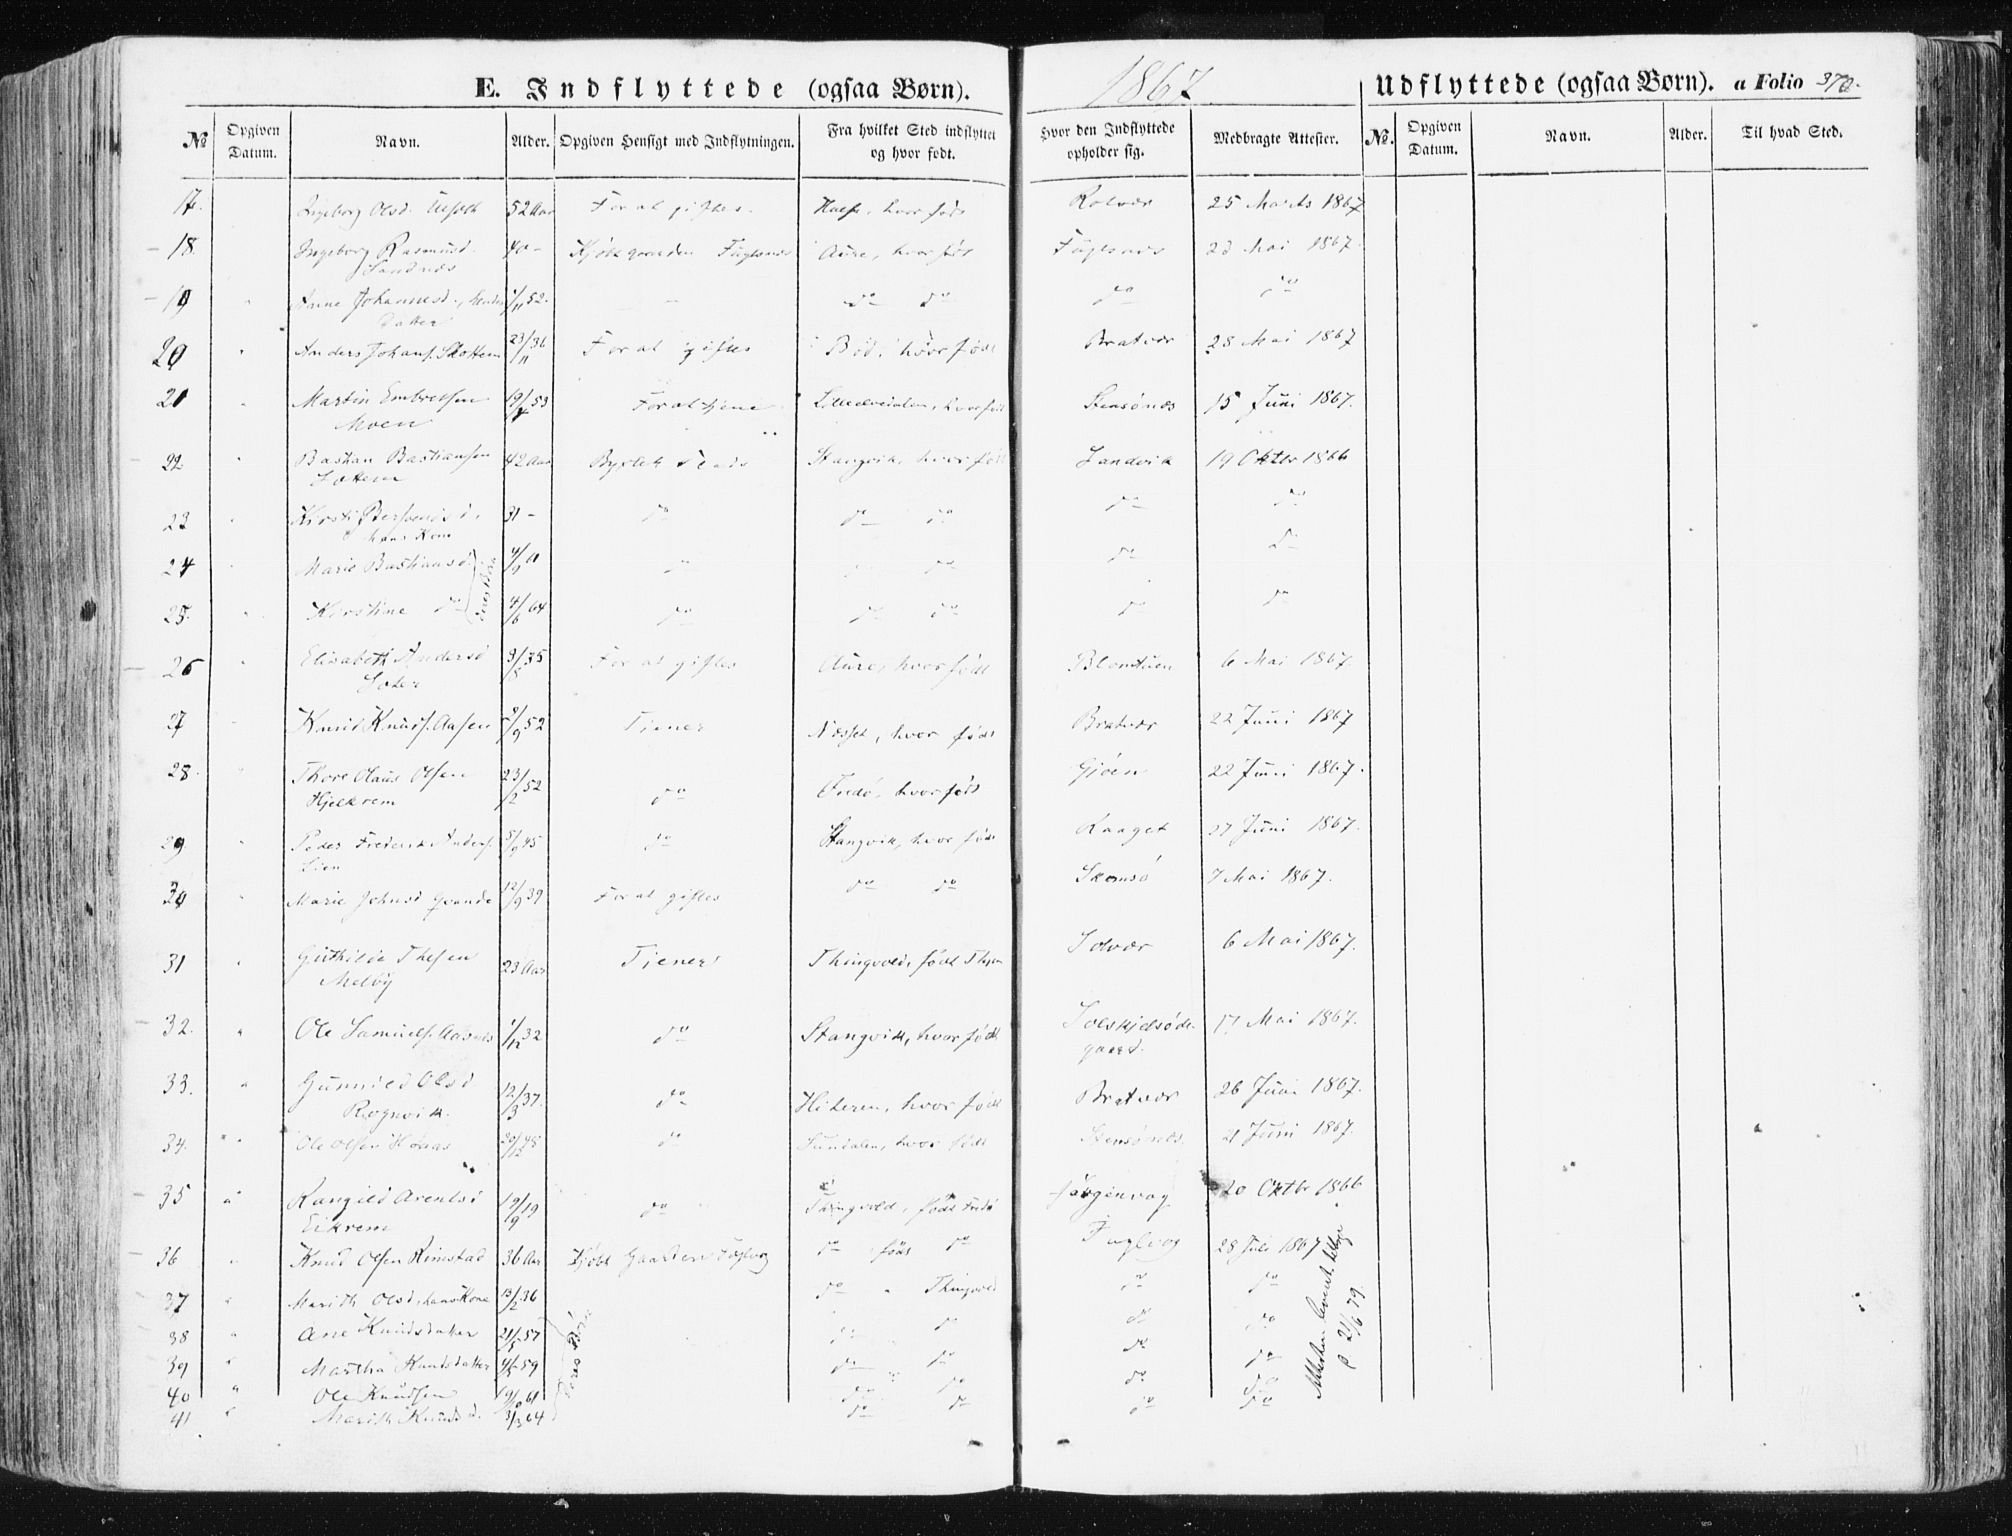 E. Indflyttede (ogsaa Børn). 1867 Udflyttede (ogsaa Børn). a Folio 370.
№ Opgiven Datum. Navn. Alder. Opgiven Hensigt med Indflytningen. Fra hvilket Sted indflyttet og hvor født. Hvor den Indflyttede opholder sig. Medbragte Attester. №. Opgiven Datum. Navn. Alder. Til hvad Sted.
17. Ingeborg Olsd. 52 Aar For at giftes. Halse, hvor født 25 Marts 1867
18. Ingeborg Rasmusd. Sandnæs 40 - Kjøbt gaarden Fuglsnæs Aure, hvor født Fuglsnæs 23 Mai 1867.
19 " Anne Johannesd., hendes Datter 1/11 52. — do do do do
20 " Anders Johans. Skottem 23/11 36 For at giftes Bød, hvor født Bratvær 28 Mai 1867
21 " Martin Embretsen Moen 53 For at tjene hvor født Stensönæs 15 Juni 1867.
22 " Bastian Bastiansen 42 Aar Byxlet Stangvik, hvor født Sandvik 19 Oktbr 1866
23 " Kirsti hans Kone 31 - do do do do do
24 " Marie Bastiansd. deres Børn do do do do
25. " Kirstine do 4/6 64 do do do do do
26 " Elisabeth Andersd 35 For at giftes Aure, hvor født 6 Mai 1867.
27 " Knud Knuds. Aasen 9/9 52 Tjener Næsset, hvor født Bratvær 22 Juni 1867
28. " Thore Olaus Olsen Hjelkrem 23/2 52 do Fredø, hvor født Gjöen 22 Juni 1867.
29 " Peder Frederik Anders. Lien 45 do Stangvik, hvor født 27 Juni 1867.
30 " Marie Johnsd Qvande 12/9 39 For at giftes do do Skomsö 7 Mai 1867.
31 " Guthilde Thesen Melby 23 Aar Tjener Thingvold, født 6 Mai 1867.
32. " Ole Samuels. Aasnes 1/12 32 do Stangvik, hvor født Solskjelsöde gaard. 17 Mai 1867.
33. " Gunnild Olsd Rognvik. 12/3 37. do Hiteren, hvor født Bratvær 26 Juni 1867.
34. " Ole Olsen 20/12 48 do Sundalen, hvor født Stensönæs 21 Juni 1867.
35 " Rangild Arentsd Eikrem 19/9 19 do Thingvold, født Fredø Jörgenvag 20 Oktbr 1866
36 " Knud Olsen Rimstad 36 Aar Kjöbt Gaarden Fuglvog do født do Fuglvog 28 Juli 1867
37 " Marith Olsd, hans Kone 13/2 36 do " Thingvold do do
38 " Ane Knudsdatter 21/5 57 deres Børn do do do do
39 " Martha Knudsdatter 4/5 59 do do do do
40 " Ole Knudsen 19/10 61 do do do do
41 " Marith Knudsd. 3/3 64 do do do do
21/6 79.